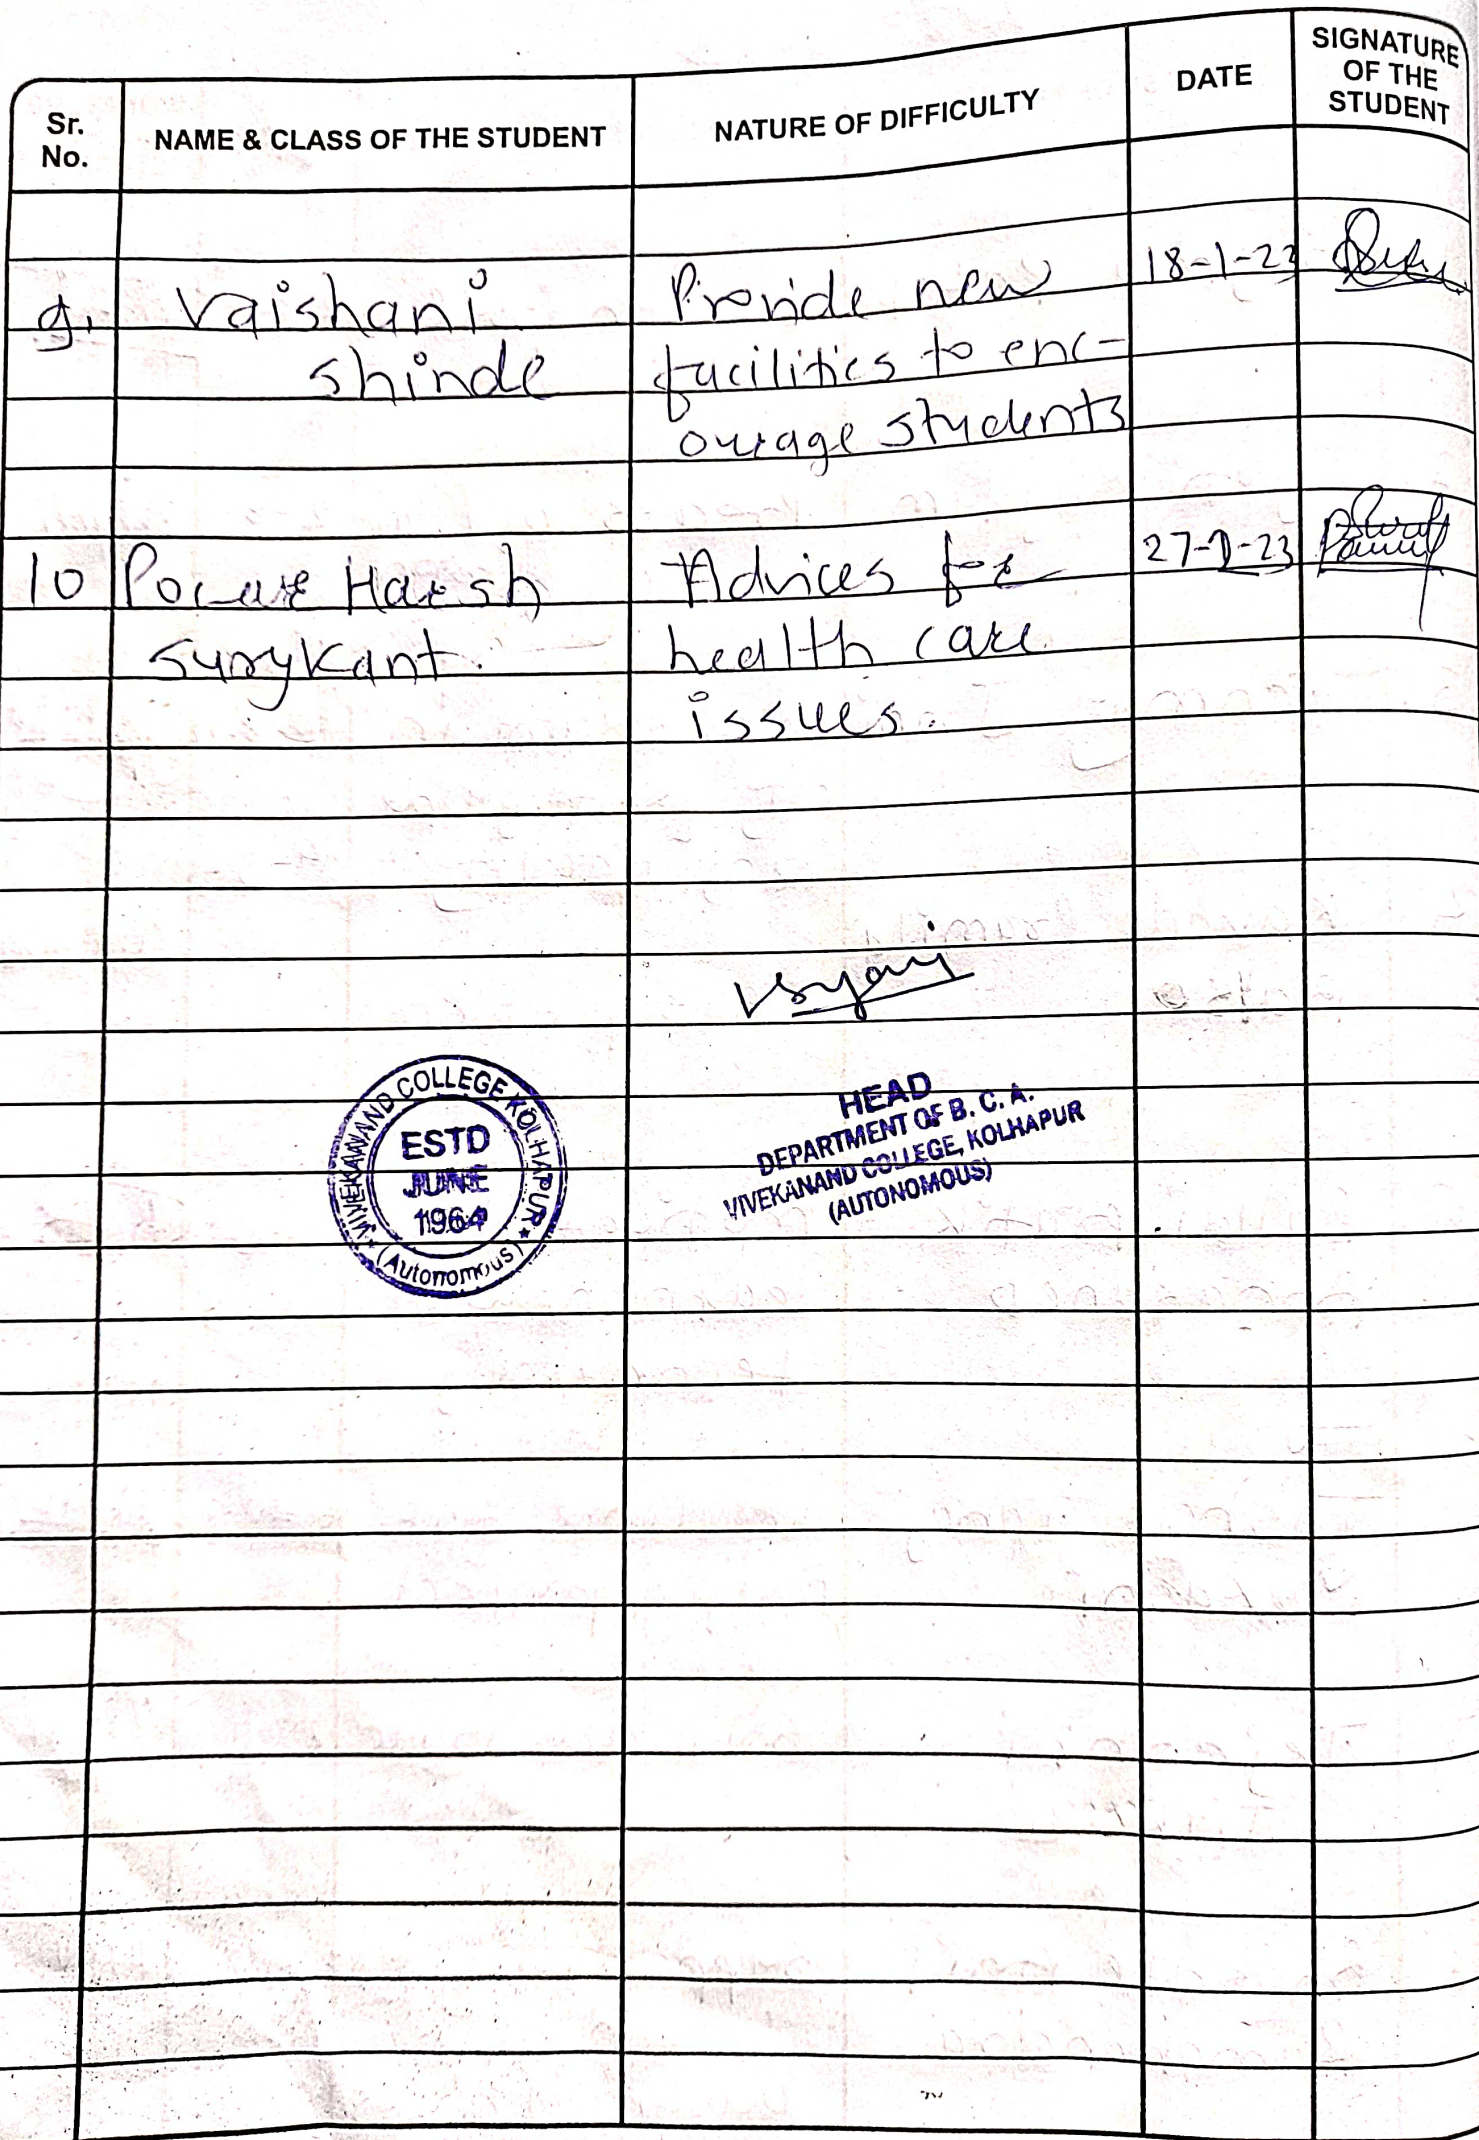 Sr. No.
NAME & CLASS OF THE STUDENT
NATURE OF DIFFICULTY
DATE
SIGNATURE OF THE STUDENT
9. Vaishani Provide new 18-1-23
shinde facilities to enc-
ourage students
10 Powar Harsh Advices for 27-2-23
Surykant. health care
issues.
VIVEKANAND COLLEGE KOLHAPUR
ESTD
JUNE
1964
(Autonomous)
HEAD
DEPARTMENT OF B. C. A.
VIVEKANAND COLLEGE, KOLHAPUR
(AUTONOMOUS)